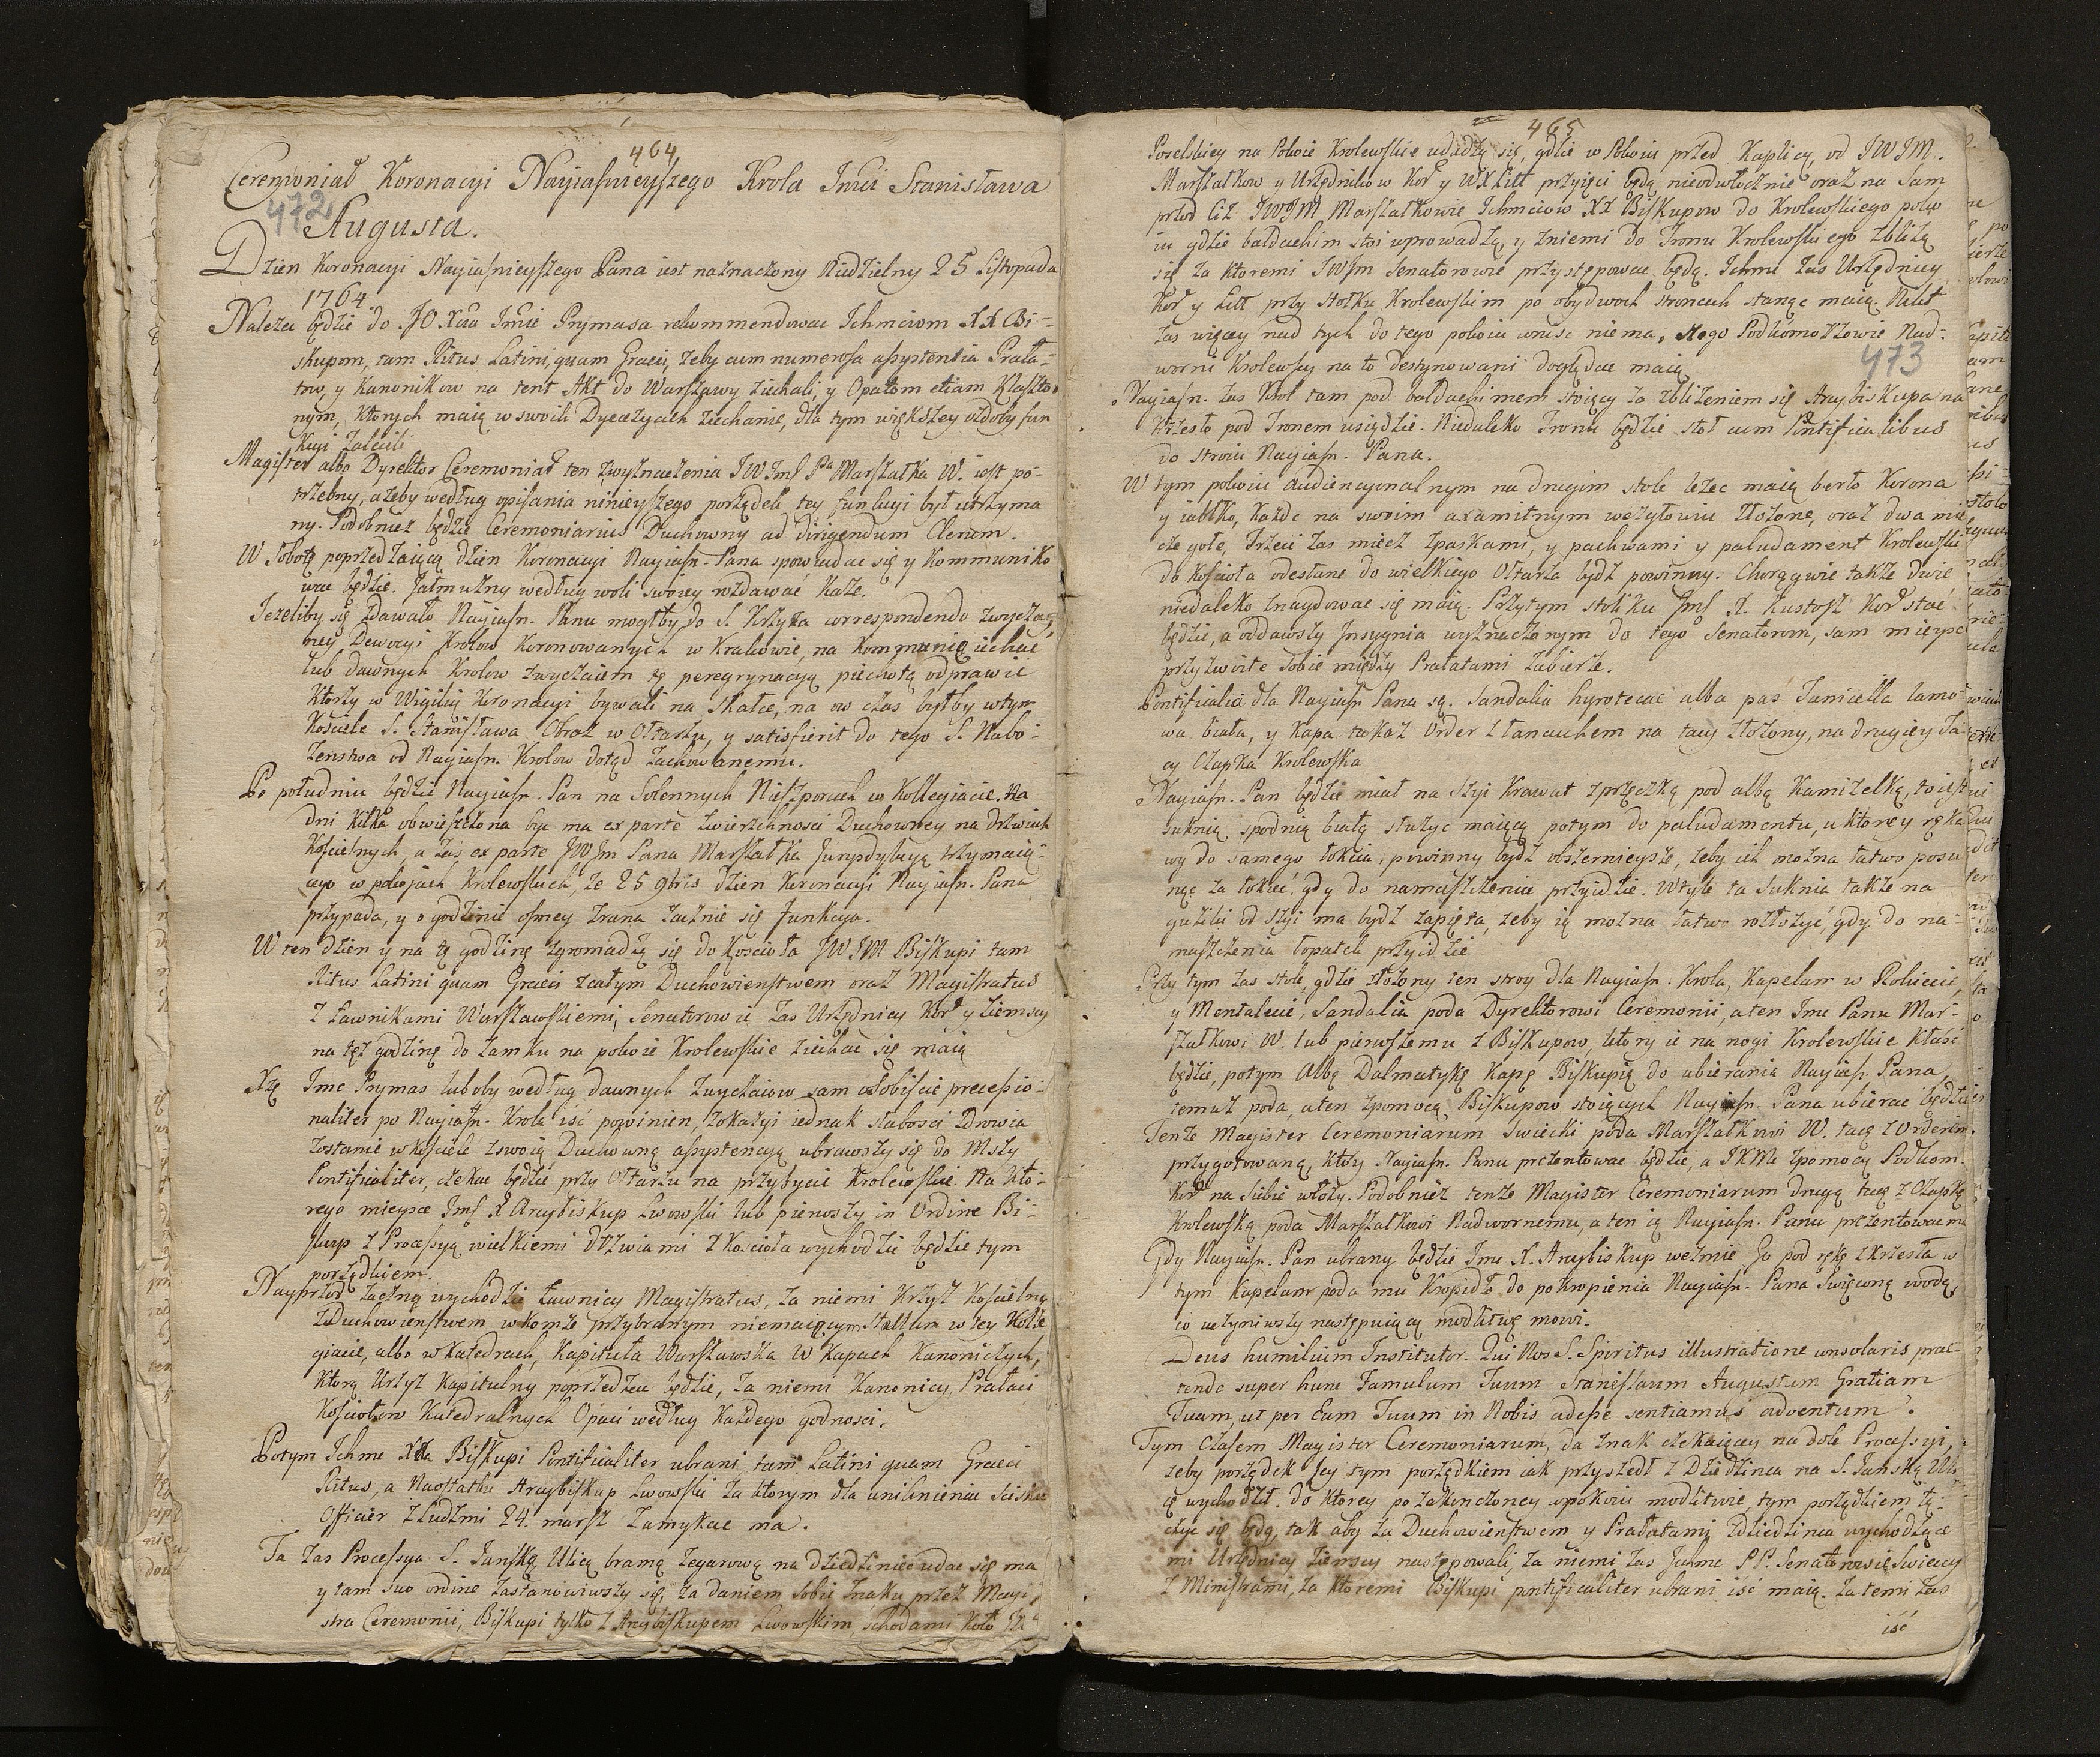 464
Ceremoniał Koronacyi Nayiasnieyszego Krola Jmci Stanisława
472
Augusta.
Dzien Koronacyi Nayiasnieyszego Pana iest naznaczony Niedzielny 25 Listopada
1764
Należeć będzie do JO Xcia Jmci Prymasa rekommendowac Ichmciom XX Bi-
skupom, tam Ritus Latini, quam Graeci, żeby cum numerosa assystentia Prała-
tow, y Kanonikow na tent Akt do Warszawy ziechali, y Opatom etiam Klaszto-
nym, ktorych maią w swoich Dyecezyach ziechanie, dla tym większey ozdoby fun
kcyi zalecili
Magister albo Dyrektor Ceremoniał ten z wyznaczenia JW Jmsc Pa Marszałka W. iest po-
trzebny, ażeby według opisania ninieyszego porządek tey funkcyi był utrzyma
ny. Podobnież będzie Ceremoniarius Duchowny ad dirigendum Clerum.
W Sobotę poprzedzaiącą dzien Koronacyi Nayiasn. Pana spowiadac się y Kommuniko
wac będzie. Jałmużny według woli swoiey rozdawać każe.
Jeżeliby się zdawało Nayiasn. Panu mogłby do S. Krzyża correspondendo zwyczay
ney Dewocyi Krolow Koronowanych w Krakowie, na Kommunią iechac
lub dawnych Krolow zwyczaiem tę peregrynacyą piechotą odprawić
ktorzy w Wigilią Koronacyi bywali na Skałce, na ow czas byłby w tym
Kościele S. Stanisława Obraz w Ołtarzu, y satisfierit do tego S. Nabo-
żenstwa od Nayiasn. Krolow dotąd zachowanemu.
Po południu będzie Nayiasn. Pan na Solennych Nieszporach w Kollegiacie. Na
dni kilka obwieszczona byc ma ex parte zwierzchnosci Duchowney na drzwiach
Kościelnych, a zaś ex parte JW Jm Pana Marszałka Jurysdykcyą trzymaią-
cego w pokoiach Krolewskich, że 25 9bris dzien Koronacyi Nayiasn. Pana
przypada, y o godzinie osmey zrana zacznie się funkcya.
W ten dzien y na tę godzinę zgromadzą się do Kościoła JW JM Biskupi tam
Ritus Latini quam Graeci z całym Duchowienstwem oraz Magistratus
z Ławnikami Warszawskiemi, Senatorowie zas Urzędnicy Kor y Ziemscy
na tęż godzinę do Zamku na pokoie Krolewskie ziechac się maią
Xżę Jmc Prymas lubo by według dawnych zwyczaiow sam osobiscie processio-
naliter po Nayiasn. Krola iść powinien, z okazyi iednak słabosci zdrowia
zostanie w kościele z swoią Duchowną assystencyą ubrawszy się do Mszy
Pontificaliter, czekac będzie przy Ołtarzu na przybycie Krolewskie Na kto-
rego mieysce Jmsc X Arcybiskup Lwowski lub pierwszy in Ordine Bi-
skup z Processyą wielkiemi Drzwiami z Kościoła wychodzic będzie tym
porządkiem.
Nayprzod zaczną wychodzic Ławnicy Magistratus, za niemi Krzyż Kościelny
z Duchowienstwem w komże przybranym niemaiącym Stallum w tey Kolle
giacie, albo w Katedrach, Kapituła Warszawska w Kapach Kanonicznych,
ktorą Krzyż Kapitulny poprzedzac będzie, za niemi Kanonicy, Prałaci
Kościołow Katedralnych Opaci według każdego godnosci.
Potym Ichmc XX Biskupi Pontificaliter ubrani tam Latini quam Graeci
Ritus, a Naostatku Arcybiskup Lwowski za ktorym dla uniknienia scisku
Officier z ludzmi 24. marsz zamykac ma.
Ta zas Processya S. Janską Ulicą bramą Zegarową na dziedziniec udac się ma
y tam suo ordine zastanowiwszy się, za daniem sobie znaku przez Magi-
stra Ceremonii, Biskupi tylko z Arcybiskupem Lwowskim, schodami koło Izby
465
Poselskiey na Pokoie Krolewskie udadzą się, gdzie w Pokoiu przed Kaplicą, od JW JM.
Marszałkow y Urzędnikow Kor y WX Litt przyięci będą nieodwłocznie oraz na sam
przod ciż JWJM Marszałkowie Ichmciow XX Biskupow do Krolewskiego poko
iu gdzie baldachim stoi wprowadzą, y z niemi do Tronu Krolewskiego zbliżą
się za ktoremi JWJm Senatorowie przystępowac będą. Ichmc zas Urzędnicy
Kor y Litt przy stołku Krolewskim po obydwoch stronach stanąc maią. Nikt
zas więcey nad tych do tego pokoiu wniśc niema, czego Podkomorzowie Nad-
worni Krolewscy na to destynowani doglądac maią
473
Nayiasn. zas Krol tam pod baldachimem stoiący za zbliżeniem się Arcybiskupa na
krześle pod Tronem usiądzie. Niedaleko Tronu będzie stoł cum Pontificalibus
do stroiu Nayiasn. Pana.
W tym pokoiu audiencyonalnym na drugim stole leżec maią berło Korona
y iabłko, każde na swoim axamitnym wezgłowiu złożone, oraz dwa mie
cze gołe, Trzeci zas miecz z paskami, y pachwami y paludament Krolewski
do Kościoła odesłane do wielkiego Ołtarza bydz powinny. Chorągwie także dwie
niedaleko znaydowac się maią. Przy tym stoliku Jmsc X. Kustosz Kor stać
będzie, a oddawszy Jnsygnia wyznaczonym do tego Senatorom, sam mieysce
przyzwoite sobie między Prałatami zabierze.
Pontificalia dla Nayiasn Pana są. Sandalia hyrotecae alba pas Tunicella lamo-
wa biała, y Kapa takaż Order z łancuchem na tacy złożony, na drugiey ta
cy Czapka Krolewska
Nayiasn. Pan będzie miał na szyi Krawat z przęczką pod albą Kamizelką, to iest
suknią spodnią białą służyc maiącą potym do paludamentu, u ktorey ręka
wy do samego łokcia, powinny bydz obszernieysze, żeby ich można łatwo posu
nąc za łokieć, gdy do namaszczenia przyidzie. W tyle ta Suknia także na
guziki od szyi ma bydz zapięta, żeby ią można łatwo rozłożyć, gdy do na-
maszczenia łopatek przyidzie
Przy tym zas stole, gdzie złożony ten stroy dla Nayiasn. Krola, Kapelan w Rokiecie,
y Mentalecie, Sandalia poda Dyrektorowi Ceremonii, a ten Jmc Panu Mar-
szałkowi W. lub pierwszemu z Biskupow, ktory ie na nogi Krolewskie kłaść
będzie, potym Albę Dalmatykę Kapę Biskupią do ubierania Nayiasn. Pana,
temuż poda, a ten z pomocą Biskupow stoiących Nayiasn. Pana ubierac będzie
Tenże Magister Ceremoniarum swiecki poda Marszałkowi W. tacę z Orderem
przygotowaną, ktory Nayiasn. Panu prezentowac będzie, a JKMc z pomocą Podkom.
Kor na siebie włoży. Podobnież tenże Magister Ceremoniarum drugą tacę z Czapką
Krolewską poda Marszałkowi Nadwornemu, a ten ią Nayiasn. Panu prezentowac ma
Gdy Nayiasn. Pan ubrany będzie Jmc X. Arcybiskup weźmie Go pod rękę z krzesła w
tym Kapelan poda mu Kropidło do pokropienia Nayiasn. Pana Swięconą wodą,
co uczyniwszy następuiącą modlitwę mowi.
Deus humilium Institutor. Qui Nos S. Spiritus illustratione consolaris prae-
tende super hunc Famulum Tuum Stanislaum Augustum Gratiam
Tuam, ut per Eum Tuum in Nobis adesse sentiamus adventum.
Tym czasem Magister Ceremoniarum, da znak czekaiącey na dole Processyi,
żeby porządek Jey tym porządkiem iak przyszedł z Dziedzinca na S. Janską Uli
cę wychodził. do ktorey po zakonczoney w pokoiu modlitwie, tym porządkiem łą-
czyc się będą, tak aby za Duchowienstwem y Prałatami z dziedzinca wychodzące
mi Urzędnicy Ziemscy następowali, za niemi zas Jchmc PP. Senatorowie Swieccy
z Ministrami, za ktoremi Biskupi pontificaliter ubrani iść maią. za temi zas
iść